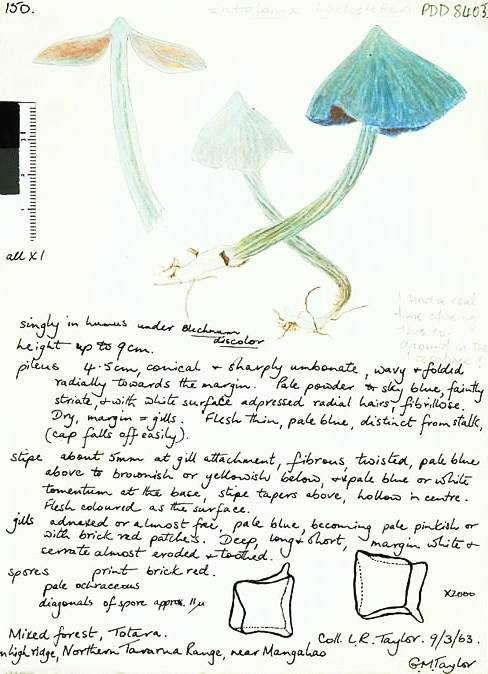 150.
entoloma hochstetteri
PDD 8403
all x 1
I had a real
time chasing
this so
around in the
singly in humus under Blechnum
discolor
height up to 9cm.
pileus 4.5cm, conical + sharply umbonate, wavy + folded
radially towards the margin. Pale powder to sky blue, faintly
striate, + with white surface adpressed radial hairs, fibrillose.
Dry, margin = gills. Flesh thin, pale blue, distinct from stalk,
(cap falls off easily).
stipe about 5mm at gill attachment, fibrous, twisted, pale blue
above to brownish or yellowish below, + pale blue or white
tomentum at the base, stipe tapers above, hollow in centre.
Flesh coloured as the surface.
gills adnexed or almost free, pale blue, becoming pale pinkish or
with brick red patches. Deep, long + short, margin white +
serrate almost eroded + toothed.
spores print brick red.
pale ochraceous
diagonals of spore approx. 11µ
x2000
Mixed forest, Totara.
Coll. L.R. Taylor. 9/3/63.
high ridge, Northern Tararua Range, near Mangahao
G.M. Taylor